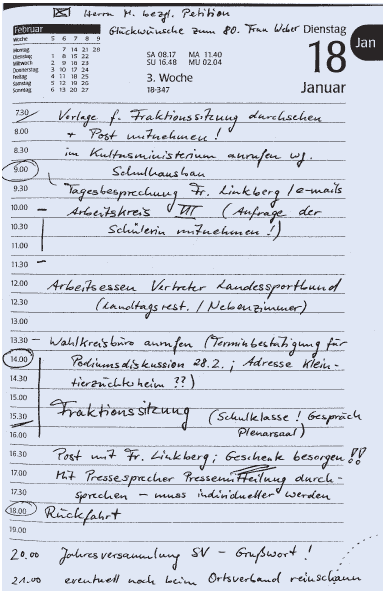 ✉ Herrn M. bezgl. Petition
Glückwünsche zum 80. Frau Weber
Februar
Woche 5 6 7 8 9
Montag 7 14 21 28
Dienstag 1 8 15 22
Mittwoch 2 9 16 23
Donnerstag 3 10 17 24
Freitag 4 11 18 25
Samstag 5 12 19 26
Sonntag 6 13 20 27
SA 08.17 MA 11.40
SU 16.48 MU 02.04
3. Woche
18-347
Dienstag
18
Januar
Jan
7.30 Vorlage f. Fraktionssitzung durchsehen
8.00 + Post mitnehmen!
8.30 im Kultusministerium anrufen wg.
9.00 Schulhausbau
9.30 Tagesbesprechung Fr. Linkberg / e-mails
10.00 – Arbeitskreis VII (Anfrage der
10.30 Schülerin mitnehmen!)
11.00
11.30 –
12.00 Arbeitsessen Vertreter Landessportbund
12.30 (Landtagsrest. / Nebenzimmer)
13.00
13.30 – Wahlkreisbüro anrufen (Terminbestätigung für
14.00 Podiumsdiskussion 28.2.; Adresse Klein-
14.30 tierzüchterheim ??)
15.00
15.30 Fraktionssitzung (Schulklasse! Gespräch
16.00 Plenarsaal)
16.30 Post mit Fr. Linkberg; Geschenk besorgen!!
17.00 Mit Pressesprecher Pressemitteilung durch-
17.30 sprechen – muss individueller werden
18.00 Rückfahrt
19.00
20.00 Jahresversammlung SV – Grußwort!
21.00 eventuell noch beim Ortsverband reinschauen